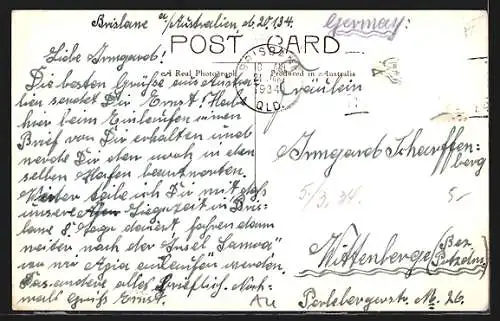 Brisbane a/Australien d. 20.1.34.
Germany:
POST CARD
A Real Photograph Produced in Australia
BRISBANE
1934
QLD.
Liebe Irmgard!
Die besten Grüße aus Austra-
lien sendet Dir Ernst. Habe
hier beim Einlaufen einen
Brief von Dir erhalten und
werde Dir den noch in den
selben Hafen beantworten.
Weiter teile ich Dir mit daß
unsere Liegezeit in Bris-
bane 8 Tage dauert, fahren dann
weiter nach der Insel Samoa
wo wir Apia anlaufen werden.
Das andere alles brieflich. Noch-
mals Gruß Ernst.
Fräulein
Irmgard Scharffen-
berg
5/3.34.
5-
Wittenberge (Bez.
Potsdam)
Perlebergerstr. No. 26.